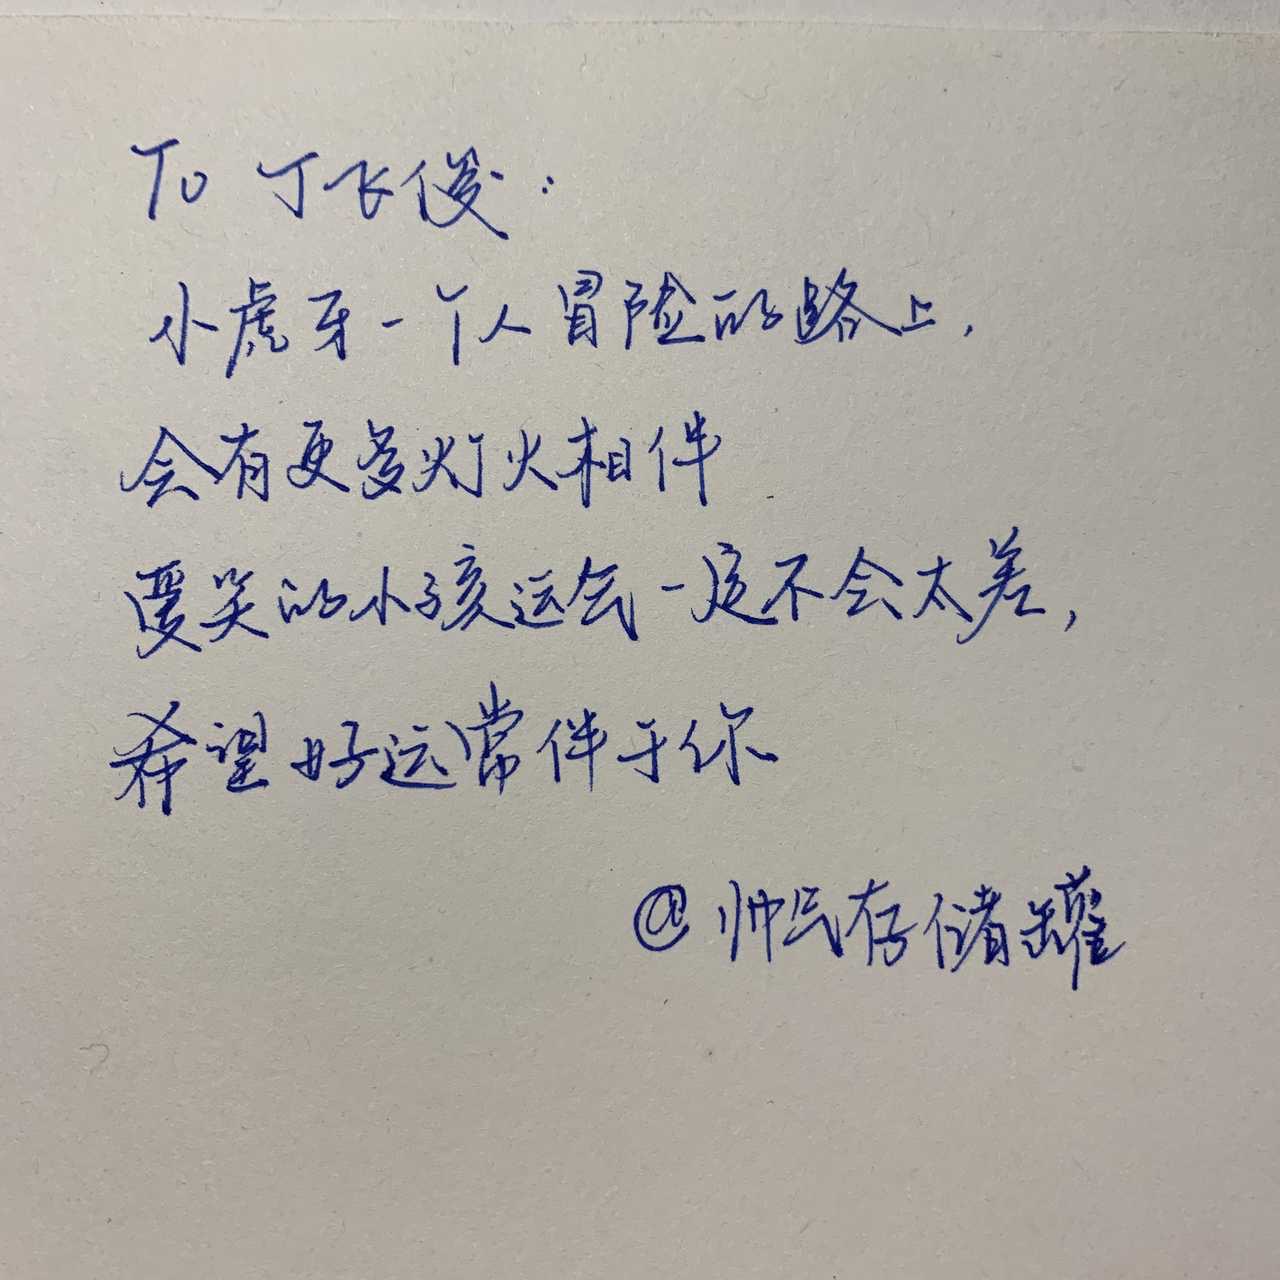 To 丁飞俊：
小虎牙一个人冒险的路上，
会有更多灯火相伴
爱笑的小孩运会一定不会太差，
希望好运常伴于你
@帅民存储罐